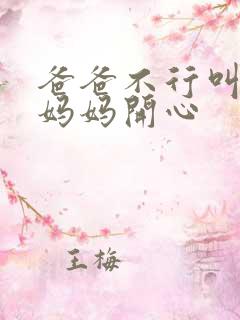 爸爸不行叫
妈妈開心
王梅